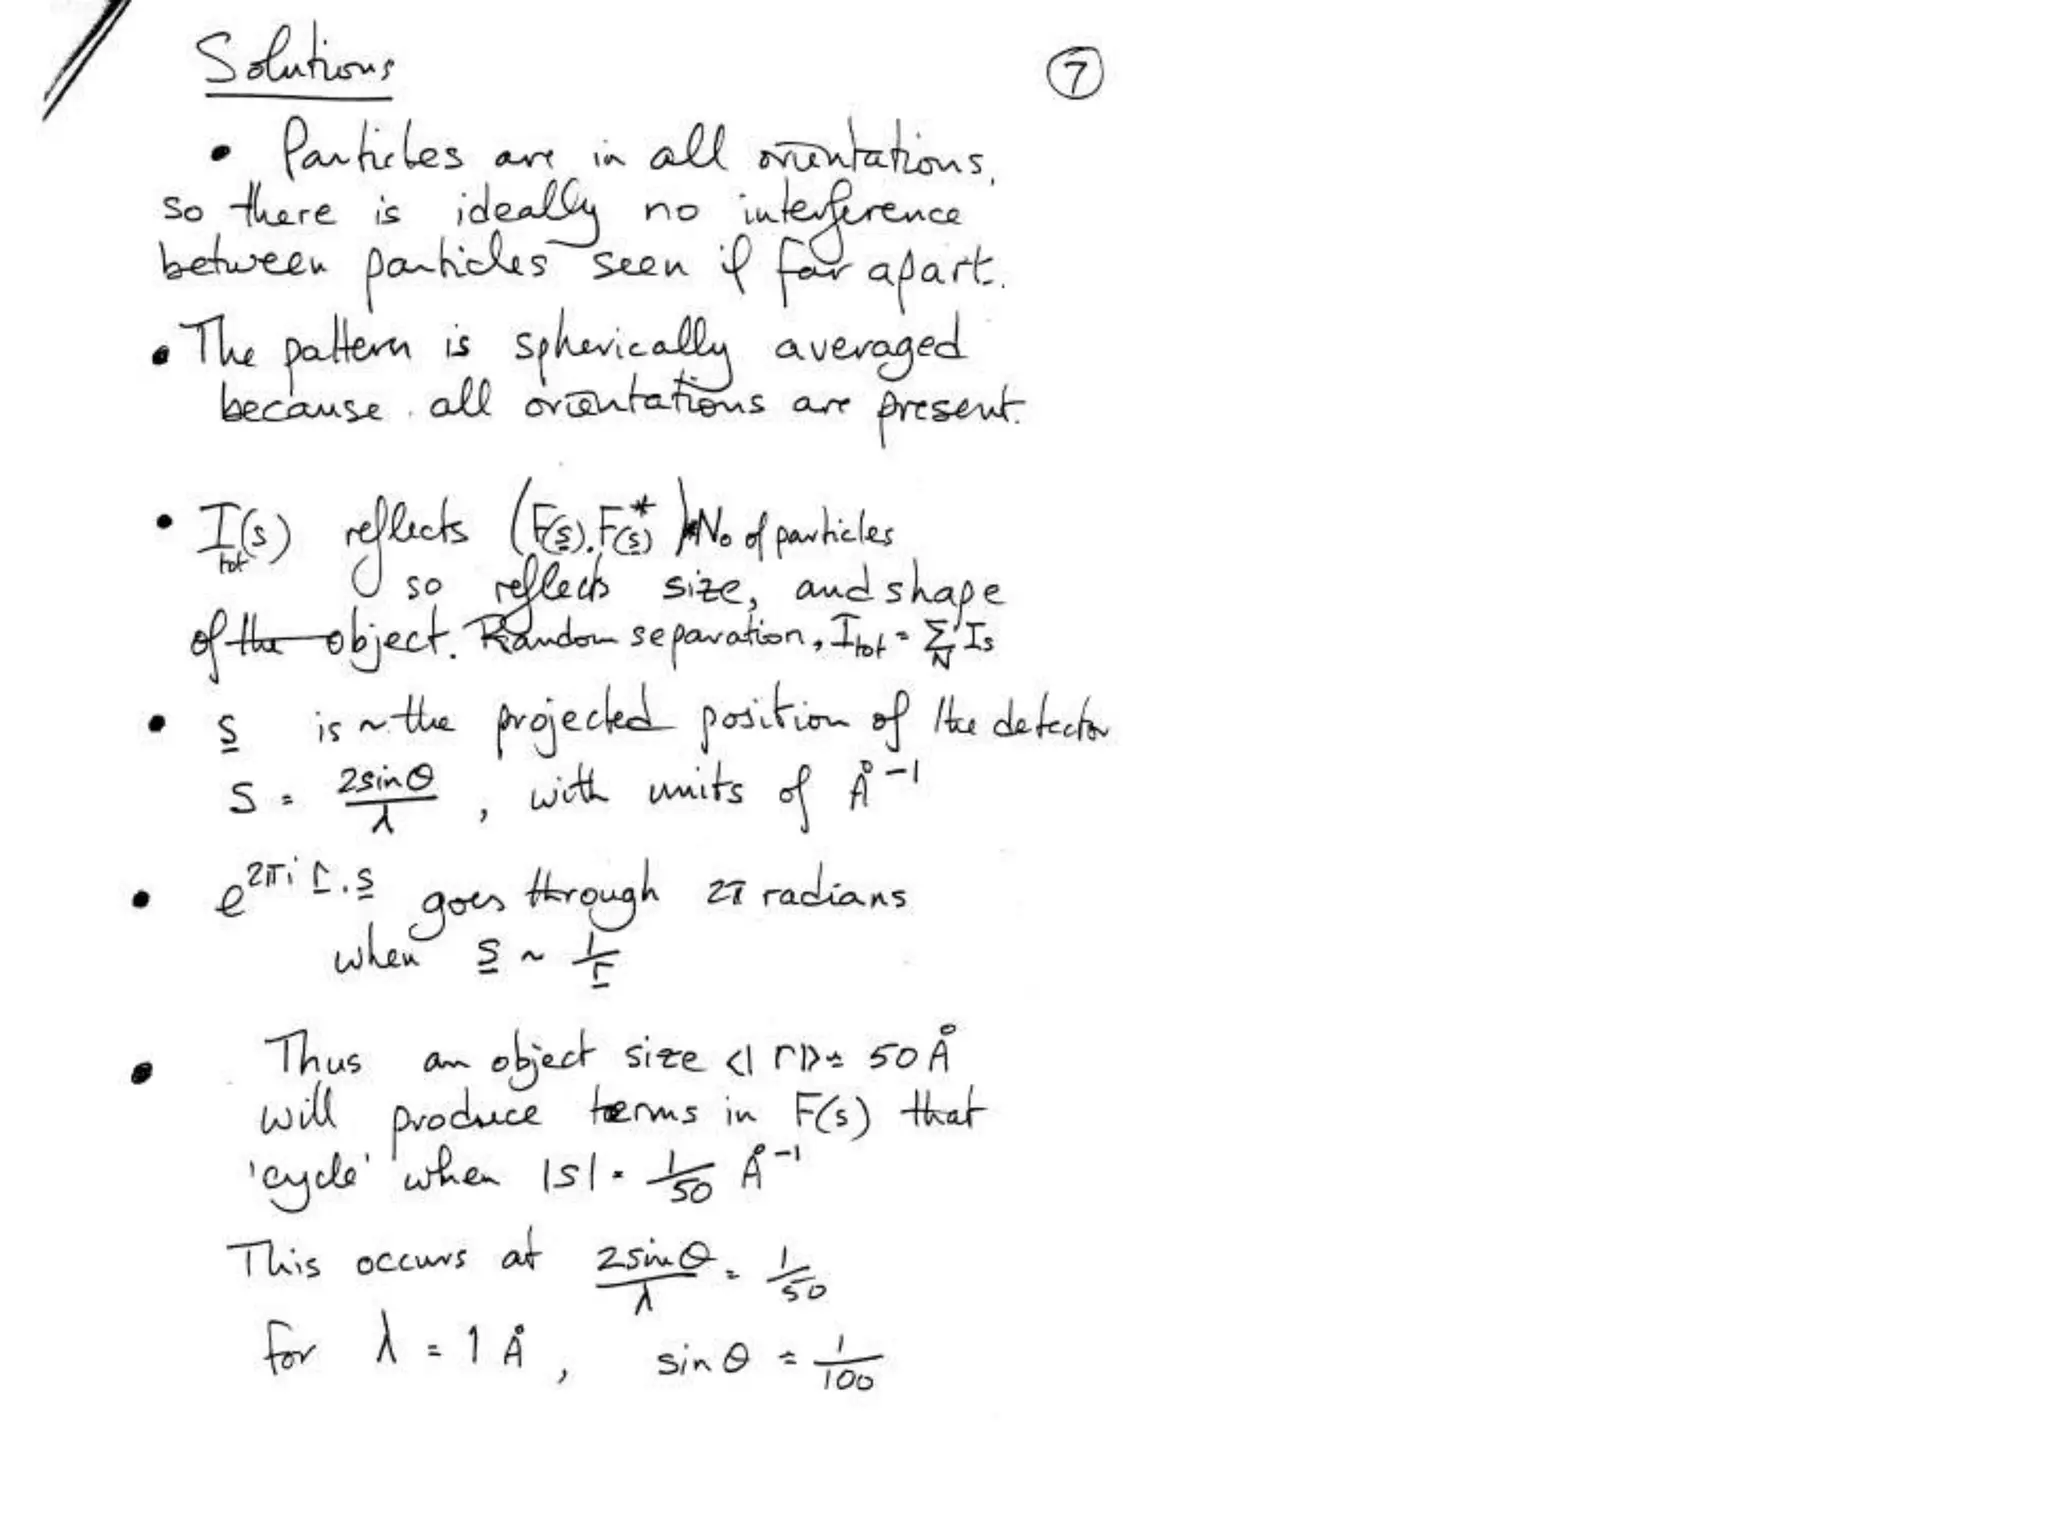 Solutions
⑦
• Particles are in all orientations,
so there is ideally no interference
between particles seen if far apart.
• The pattern is spherically averaged
because all orientations are present.
• I(s) reflects (F(s).F(s)*)*No of particles
tot
so reflects size, and shape
of the object. Random separation, Itot = Σ Is
N
• s is ~ the projected position of the detector
S = 2sinθ/λ, with units of Å⁻¹
• e^2πi r.s goes through 2π radians
when s ~ 1/r
• Thus an object size <|r|> = 50 Å
will produce terms in F(s) that
'cycle' when |s| = 1/50 Å⁻¹
This occurs at 2sinθ/λ = 1/50
for λ = 1 Å, sin θ = 1/100